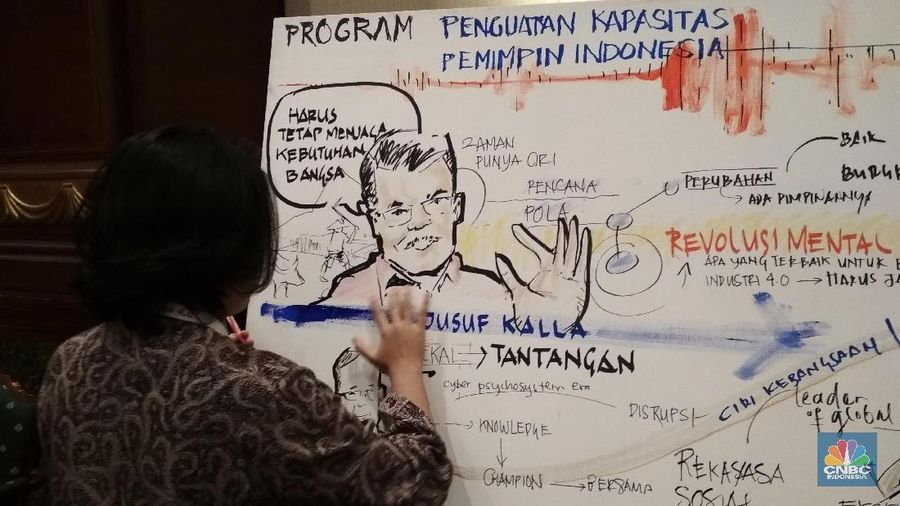 PROGRAM PENGUATAN KAPASITAS
PEMIMPIN INDONESIA
HARUS
TETAP MENJAGA
KEBUTUHAN
BANGSA
ZAMAN
PUNYA CIRI
RENCANA
POLA
PERUBAHAN
BAIK
BURUK
ADA PIMPINANNYA
REVOLUSI MENTAL
APA YANG TERBAIK UNTUK
INDUSTRI 4.0 → HARUS
JUSUF KALLA
→ TANTANGAN
cyber psychosystem era
DISRUPSI
CIRI KEBANGSAAN
leader
of global
→ KNOWLEDGE
CHAMPION → BERSAMA
REKAYASA
SOSIAL
CNBC
INDONESIA